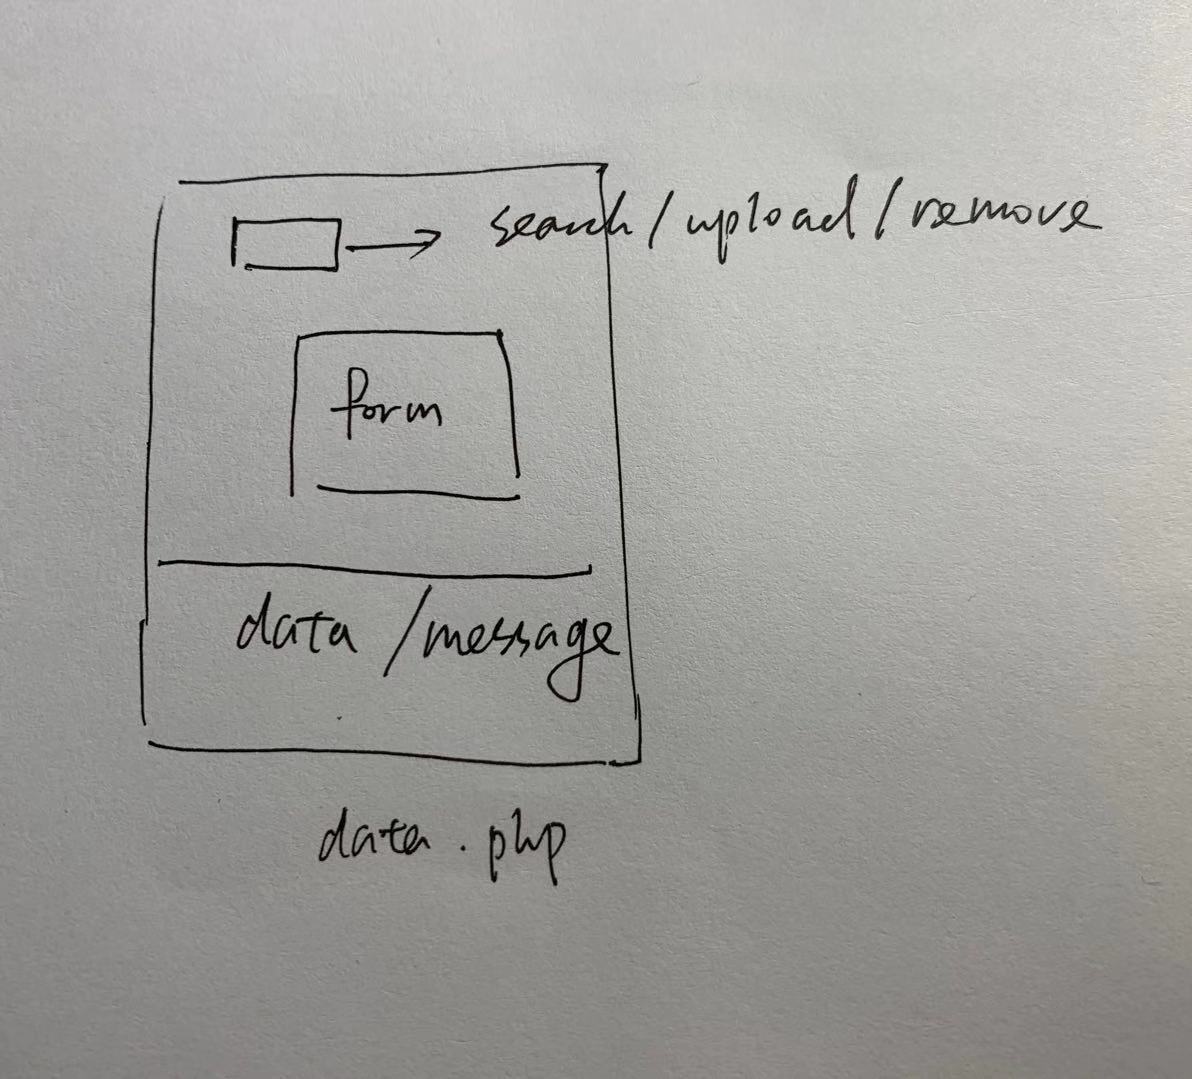 search/upload/remove
form
data/message
data.php